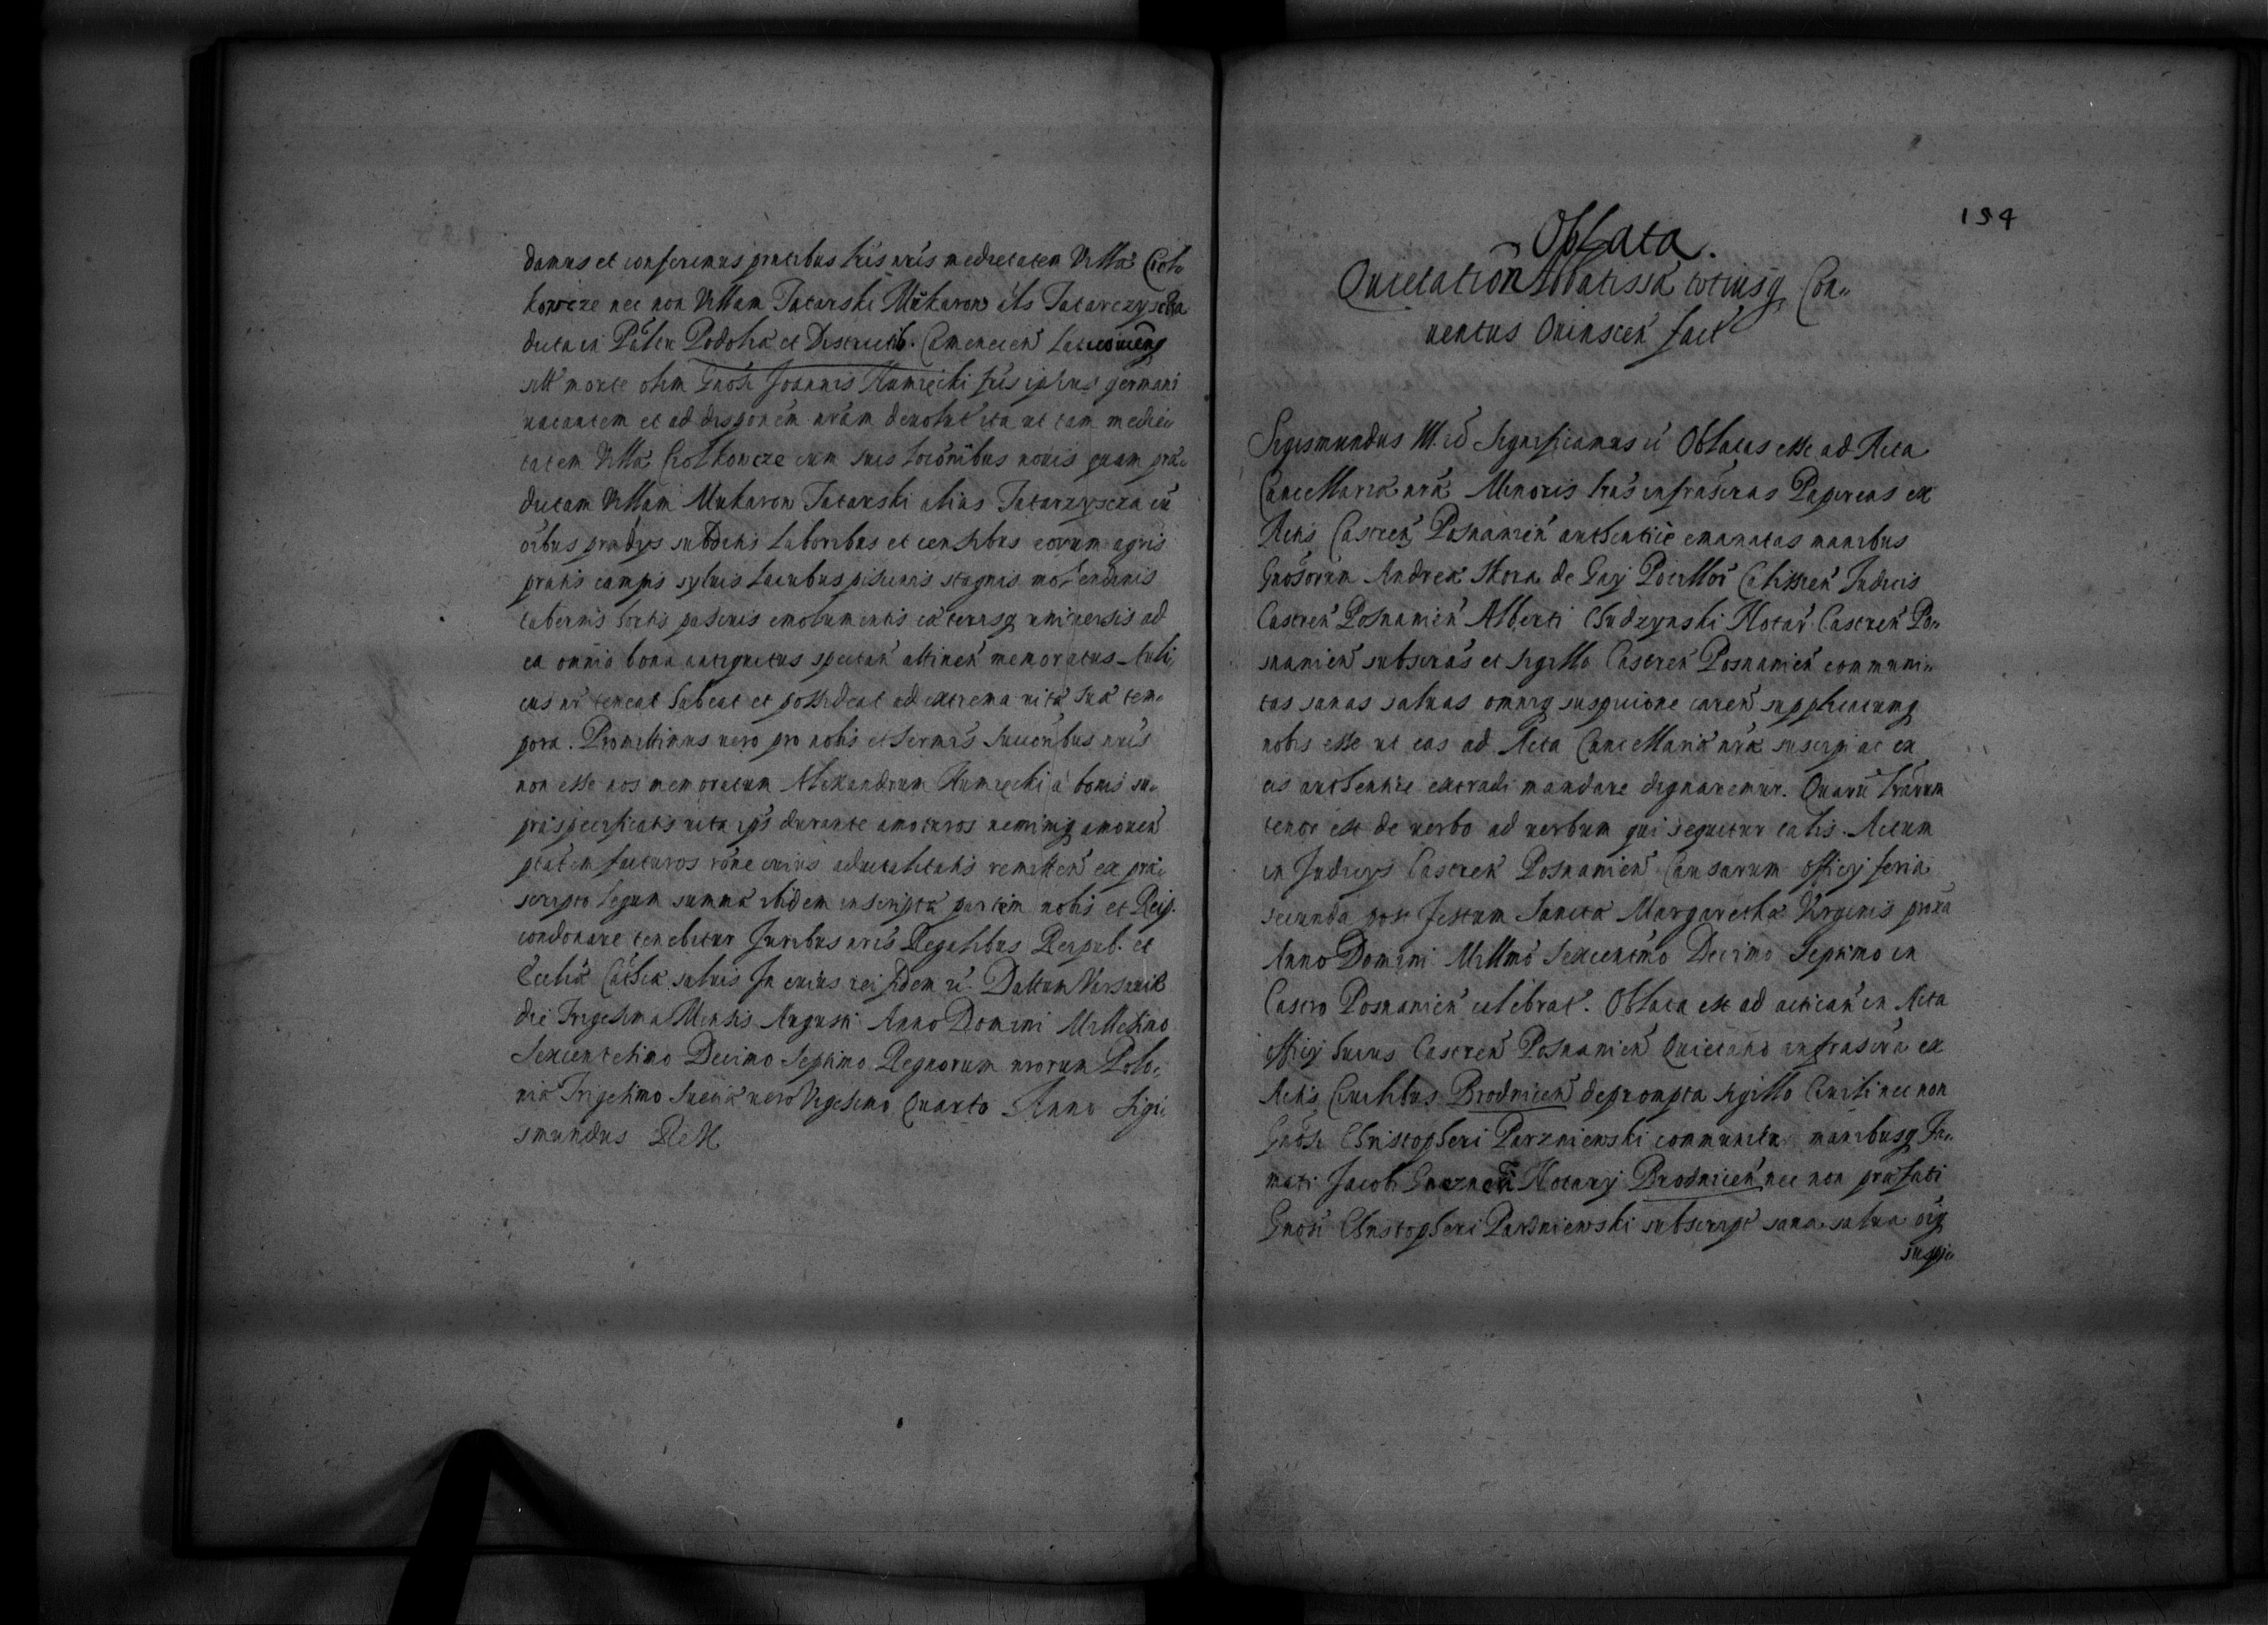 damus et conferimus pn̄tibus lris nr̄is medietatem Villæ Ciołko
kowcze nec non Villam Tatarski Mukarow als Tatarczyscza
dicta in Palatu Podoliæ et Districtib. Camenecen Laticouieñ
sitt morte olim Gnosi Joannis Humięcki fr̄is ipsius germani
uacantem et ad dispoñem nr̄am deuolut ita ut tam medie
tatem Villæ Ciołkowcze cum suis locoñibus nouis quam præ
dictam Villam Mukarow Tatarski alias Tatarzyscza cū
oībus prædys subditis laboribus et censibus eorum agris
pratis campis syluis lacubus piscinis stagnis molendinis
tabernis hortis pascuis emolumentis cæterisq uniuersis ad
ea omnia bona antiquitus spectañ attineñ memoratus Auli
cus nr̄ teneat habeat et possideat ad extrema uitæ suæ tem
pora. Promittimus uero pro nobis et Sermis Succoribus nr̄is
non esse nos memoratum Alexandrum Humięcki a bonis su
præspecificatis uita ips̄ durante amoturos neminiq amoueñ
ptatem facturos rōne cuius aduitalitatis remitteñ ex præ
scripto legum summæ ibidem inscriptæ partem nobis et Reip.
condonare tenebitur Juribus nr̄is Regalibus Reipub. et
Eccliæ Cath̄cæ saluis In cuius rei fidem rc̄. Dattum Varsauiæ
die Trigesima Mensis Augusti Anno Domini Millesimo
Sexcentesimo Decimo Septimo Regnorum nrorum Polo
niæ Trigesimo Sueciæ uero Vigesimo Quarto Anno Sigi
smundus ReX
194
Oblata.
Quietatioñ Abbatissæ totiusq Con
uentus Ouinsceñ fact
Sigismundus III. rc̄ Significamus rc̄ Oblatas esse ad Acta
Cancellariæ nr̄æ Minoris lr̄as infrascras Papireas ex
Actis Castreñ Posnanieñ authentice emanatas manibus
Gnosorum Andreæ Skora de Gay Pocillor̄ Calissieñ Judicis
Castreñ Posnanieñ Alberti Chudzynski Notar Castreñ Po
snanieñ subscras et sigillo Castreñ Posnanieñ communi
tas sanas saluas omniq suspicione careñ supplicatumq
nobis esse ut eas ad Acta Cancellariæ nr̄æ suscipi ac ex
eis authentice extradi mandare dignaremur. Quarū lrārum
tenor est de uerbo ad uerbum qui sequitur talis. Actum
in Judicys Castreñ Posnanieñ Causarum officy feria
secunda post festum Sanctæ Margarethæ Virginis proxa
Anno Domini Millmo Sexcentmo Decimo Septimo in
Castro Posnanieñ celebrat. Oblata est ad acticañ in Acta
officy huius Castreñ Posnanieñ Quietatio infrascra ex
Actis Ciuilibus Brodniceñ deprompta sigillo Ciuili nec non
Gnosi Christopheri Parzniewski communita manibusq Fa
mati Jacobi Notary Brodniceñ nec non præfati
Gnosi Christopheri Parzniewski subscript sana salua oīq
suspi